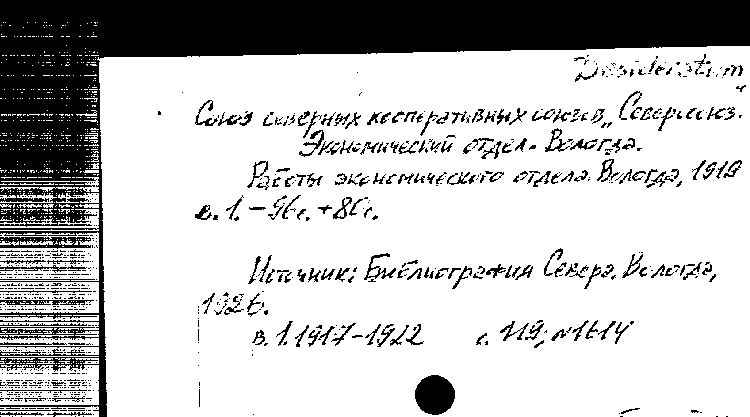 Desideratum
Союз северных кооперативных союзов „Северосоюз".
Экономический отдел. Вологда.
Работы экономического отдела. Вологда, 1919
в. 1. – 96 с. + 80 с.
Источник: Библиография Севера. Вологда,
1926.
в. 1. 1917–1922 с. 119; №1614